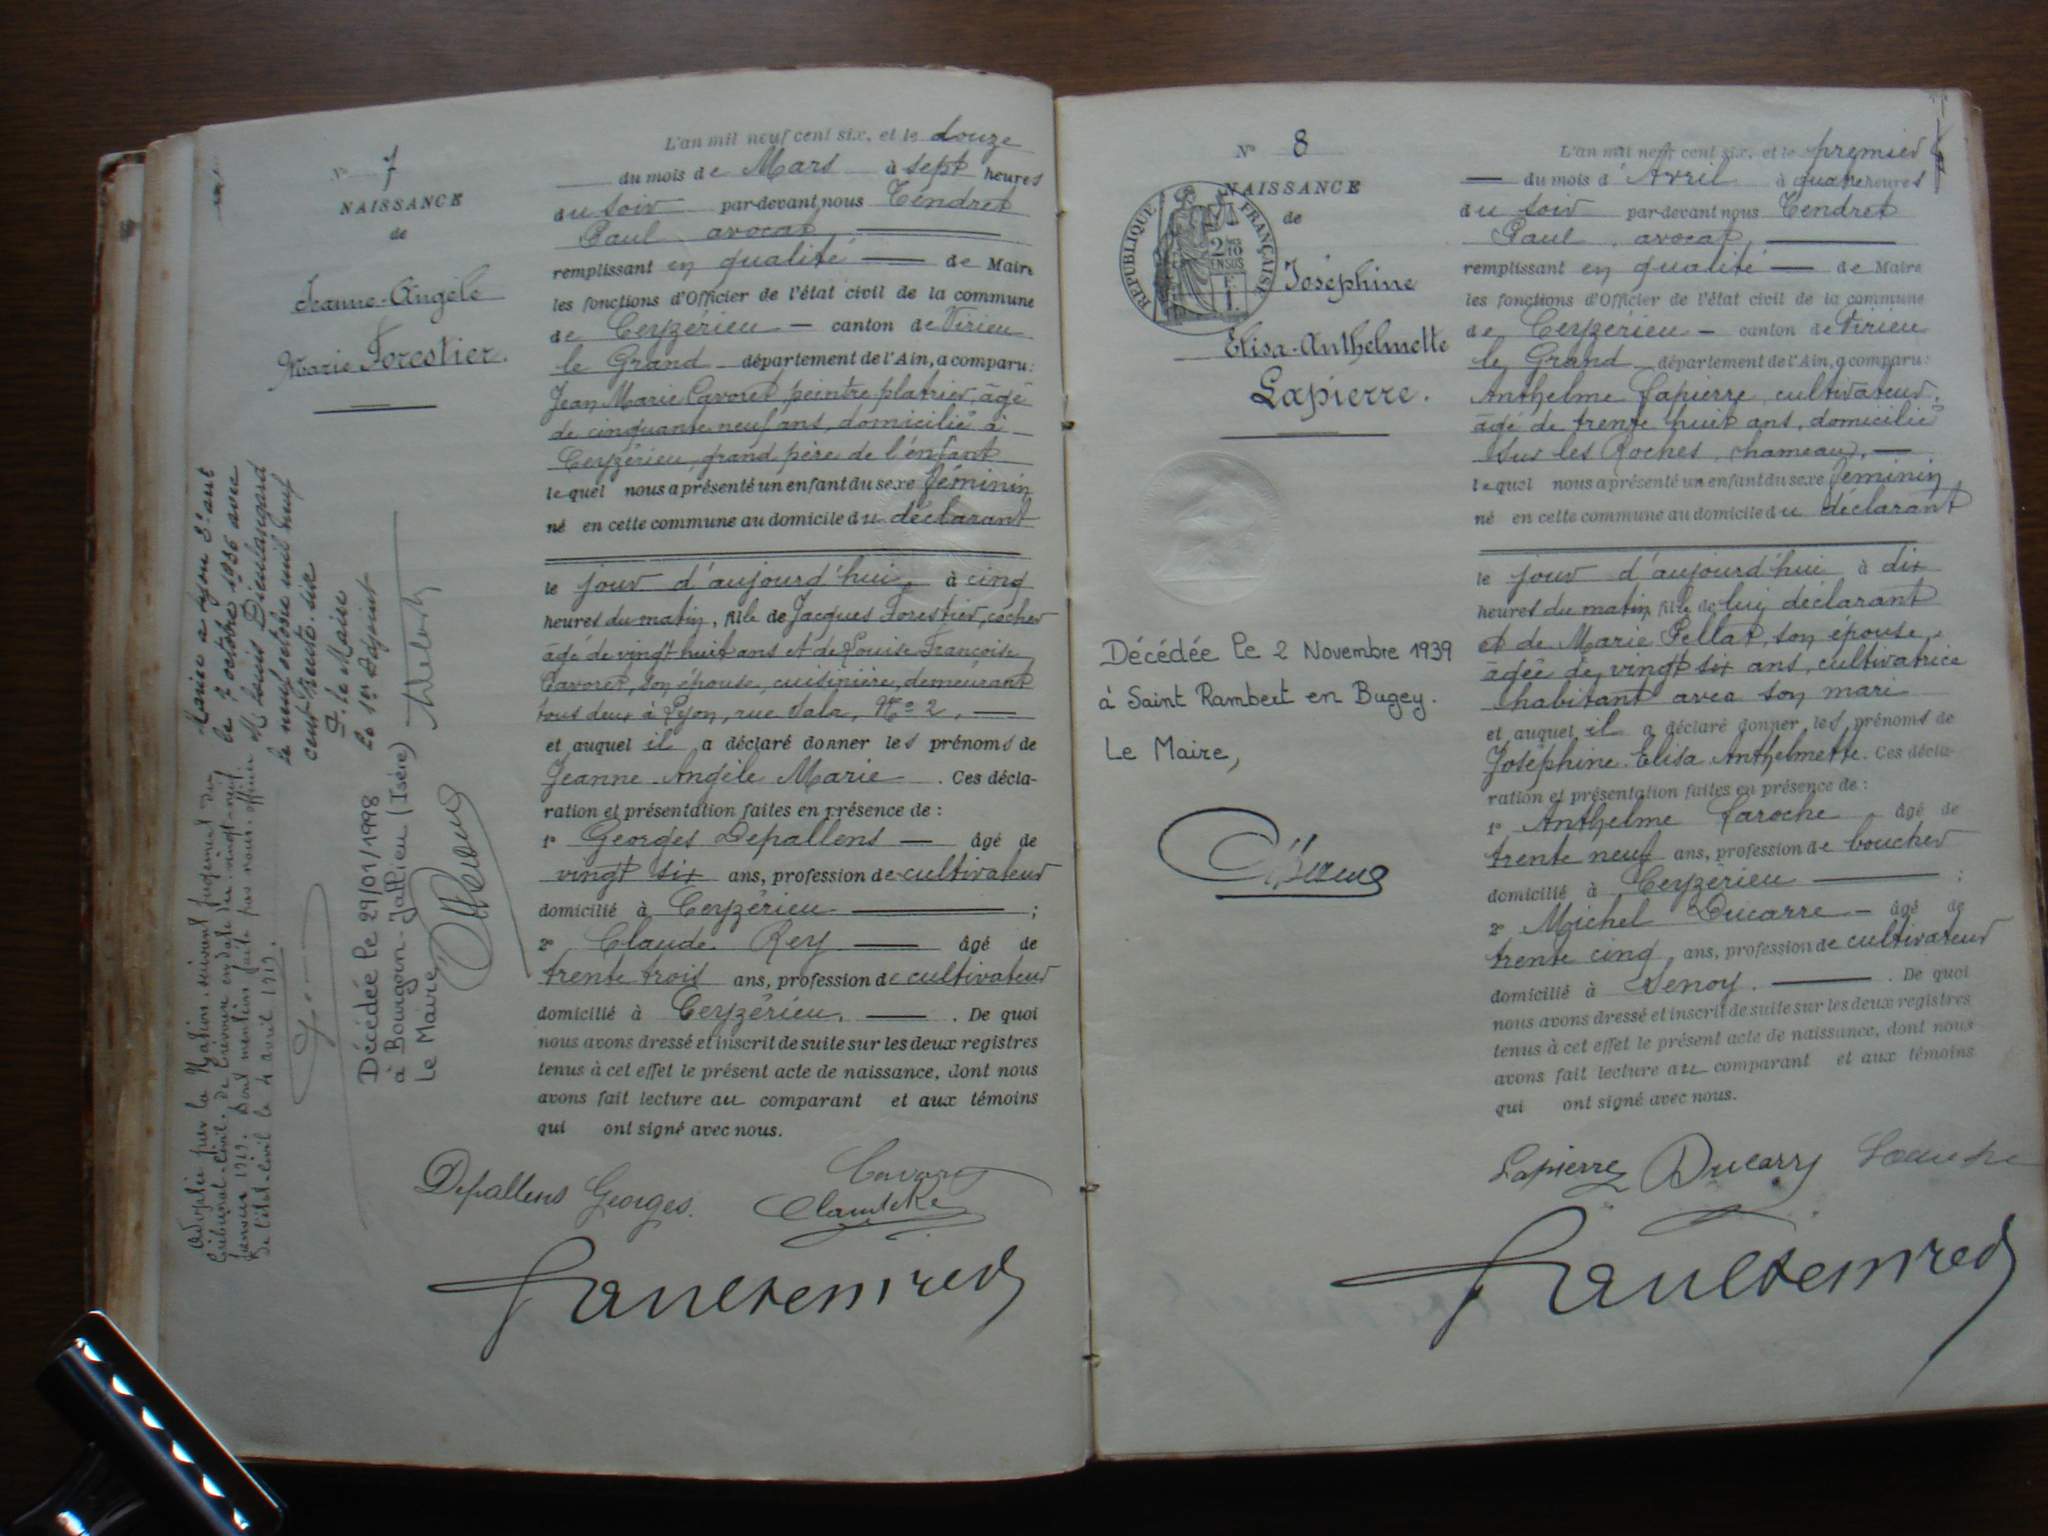 N° 7
NAISSANCE
de
Jeanne-Angèle
Marie Forestier.
L'an mil neuf cent six, et le douze
du mois de Mars à sept heures
du soir par-devant nous Tendret
Paul avocat,
remplissant en qualité de Maire
les fonctions d'Officier de l'état civil de la commune
de Ceyzérieu canton de Virieu
le Grand département de l'Ain, a comparu:
Jean Marie Cavoret peintre platrier, âgé
de cinquante neuf ans, domicilié à
Ceyzérieu, grand père de l'enfant
lequel nous a présenté un enfant du sexe féminin
né en cette commune au domicile du déclarant
le jour d'aujourd'hui, à cinq
heures du matin, fille de Jacques Forestier, cocher
âgé de vingt huit ans et de Louise Françoise
Cavoret, son épouse, cuisinière, demeurant
tous deux à Lyon, rue Sala, N° 2,
et auquel il a déclaré donner les prénoms de
Jeanne Angèle Marie. Ces décla-
ration et présentation faites en présence de :
1° Georges Depallens âgé de
vingt six ans, profession de cultivateur
domicilié à Ceyzérieu ;
2° Claude Rey âgé de
trente trois ans, profession de cultivateur
domicilié à Ceyzérieu. De quoi
nous avons dressé et inscrit de suite sur les deux registres
tenus à cet effet le présent acte de naissance, dont nous
avons fait lecture au comparant et aux témoins
qui ont signé avec nous.
Depallens Georges. Cavoret
Mariée à Lyon 3e arrt
le 7 octobre 1936 avec
M. Louis
le neuf octobre mil neuf
cent trente-six
P. le Maire
Le 1er Adjoint
Adoptée par la Nation suivant jugement du
Tribunal Civil de en date du vingt-neuf
janvier 1919. Dont mention faite par nous officier
de l'état-civil le 4 avril 1919.
Décédée le 29/01/1998
à Bourgoin-Jallieu (Isère)
Le Maire
N° 8
NAISSANCE
de
RÉPUBLIQUE FRANÇAISE
2/10 EN SUS
Joséphine
Elisa-Anthelmette
Lapierre.
Décédée le 2 Novembre 1939
à Saint Rambert en Bugey.
Le Maire,
L'an mil neuf cent six, et le premier
du mois d'Avril à quatre heures
du soir par-devant nous Tendret
Paul, avocat,
remplissant en qualité de Maire
les fonctions d'Officier de l'état civil de la commune
de Ceyzérieu canton de Virieu
le Grand département de l'Ain, a comparu:
Anthelme Lapierre, cultivateur,
âgé de trente huit ans, domicilié
sur les Roches, hameau,
lequel nous a présenté un enfant du sexe féminin
né en cette commune au domicile du déclarant
le jour d'aujourd'hui à dix
heures du matin, fille de lui déclarant
et de Marie Pellat, son épouse,
âgée de vingt six ans, cultivatrice
habitant avec son mari
et auquel il a déclaré donner les prénoms de
Joséphine Elisa Anthelmette. Ces décla-
ration et présentation faites en présence de :
1° Anthelme Laroche âgé de
trente neuf ans, profession de boucher
domicilié à Ceyzérieu ;
2° Michel Ducarre âgé de
trente cinq ans, profession de cultivateur
domicilié à Avenoy. De quoi
nous avons dressé et inscrit de suite sur les deux registres
tenus à cet effet le présent acte de naissance, dont nous
avons fait lecture au comparant et aux témoins
qui ont signé avec nous.
Lapierre Ducarre